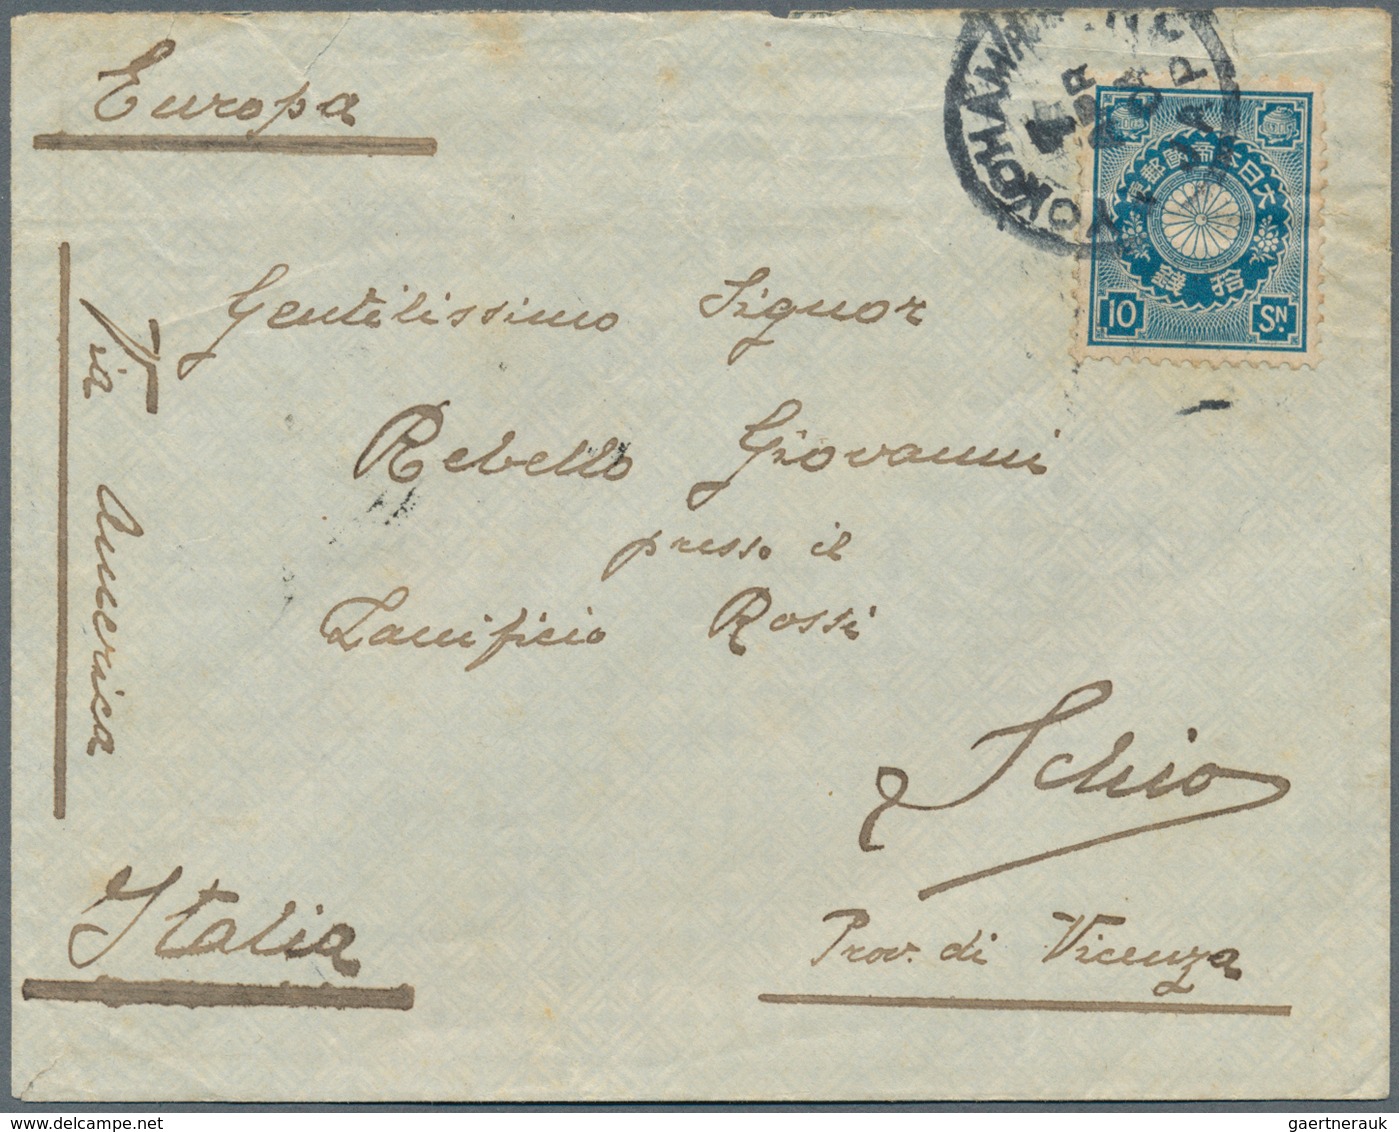 Europa
YOKOHAMA
APR
JAPAN
大日本帝國郵便
拾錢
10 SN.
Via America
Gentilissimo Signor
Rebello Giovanni
presso il
Lanificio Rossi
Schio
Italia
Prov. di Vicenza
gaertnerauk